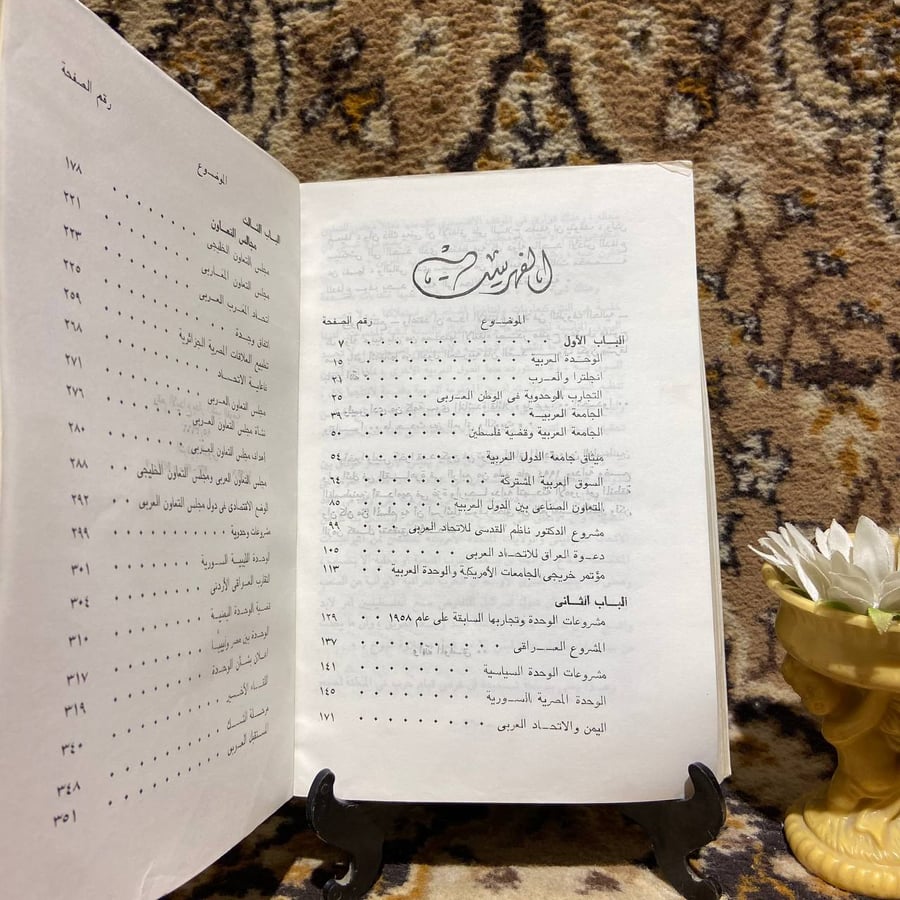 الفهرست
الموضوع رقم الصفحة
الباب الأول ٧
الوحدة العربية ١٥
انجلترا والعرب ٢١
التجارب الوحدوية فى الوطن العربى ٢٥
الجامعة العربية ٣٩
الجامعة العربية وقضية فلسطين ٥٠
ميثاق جامعة الدول العربية ٥٤
السوق العربية المشتركة ٦٤
التعاون الصناعى بين الدول العربية ٨٥
مشروع الدكتور ناظم القدسى للاتحاد العربى ٩٩
دعوة العراق للاتحاد العربى ١٠٥
مؤتمر خريجى الجامعات الأمريكية والوحدة العربية ١١٣
الباب الثانى
مشروعات الوحدة وتجاربها السابقة على عام ١٩٥٨ ١٢٩
المشروع العراقى ١٣٧
مشروعات الوحدة السياسية ١٤١
الوحدة المصرية السورية ١٤٥
اليمن والاتحاد العربى ١٧١
الموضوع رقم الصفحة
الباب الثالث
مجالس التعاون
مجلس التعاون الخليجى ١٧٨
مجلس التعاون المغاربى ٢٢١
اتحاد المغرب العربى ٢٢٣
اتفاق وجدة ٢٢٥
تطبيع العلاقات المصرية الجزائرية ٢٥٩
فاعلية الاتحاد ٢٦٨
مجلس التعاون العربى ٢٧١
نشأة مجلس التعاون العربى ٢٧٦
أهداف مجلس التعاون العربى ٢٨٠
مجلس التعاون العربى ومجلس التعاون الخليجى ٢٨٨
الوضع الاقتصادى فى دول مجلس التعاون العربى ٢٩٢
مشروعات وحدوية ٢٩٩
الوحدة الليبية السورية ٣٠١
التقارب العراقى الأردنى ٣٠٤
قضية الوحدة اليمنية ٣١٠
الوحدة بين مصر وليبيا ٣١٧
اعلان بشأن الوحدة ٣١٩
اللقاء الأخير ٣٤٠
مرحلة الشك ٣٤٨
المستقبل العربى ٣٥١